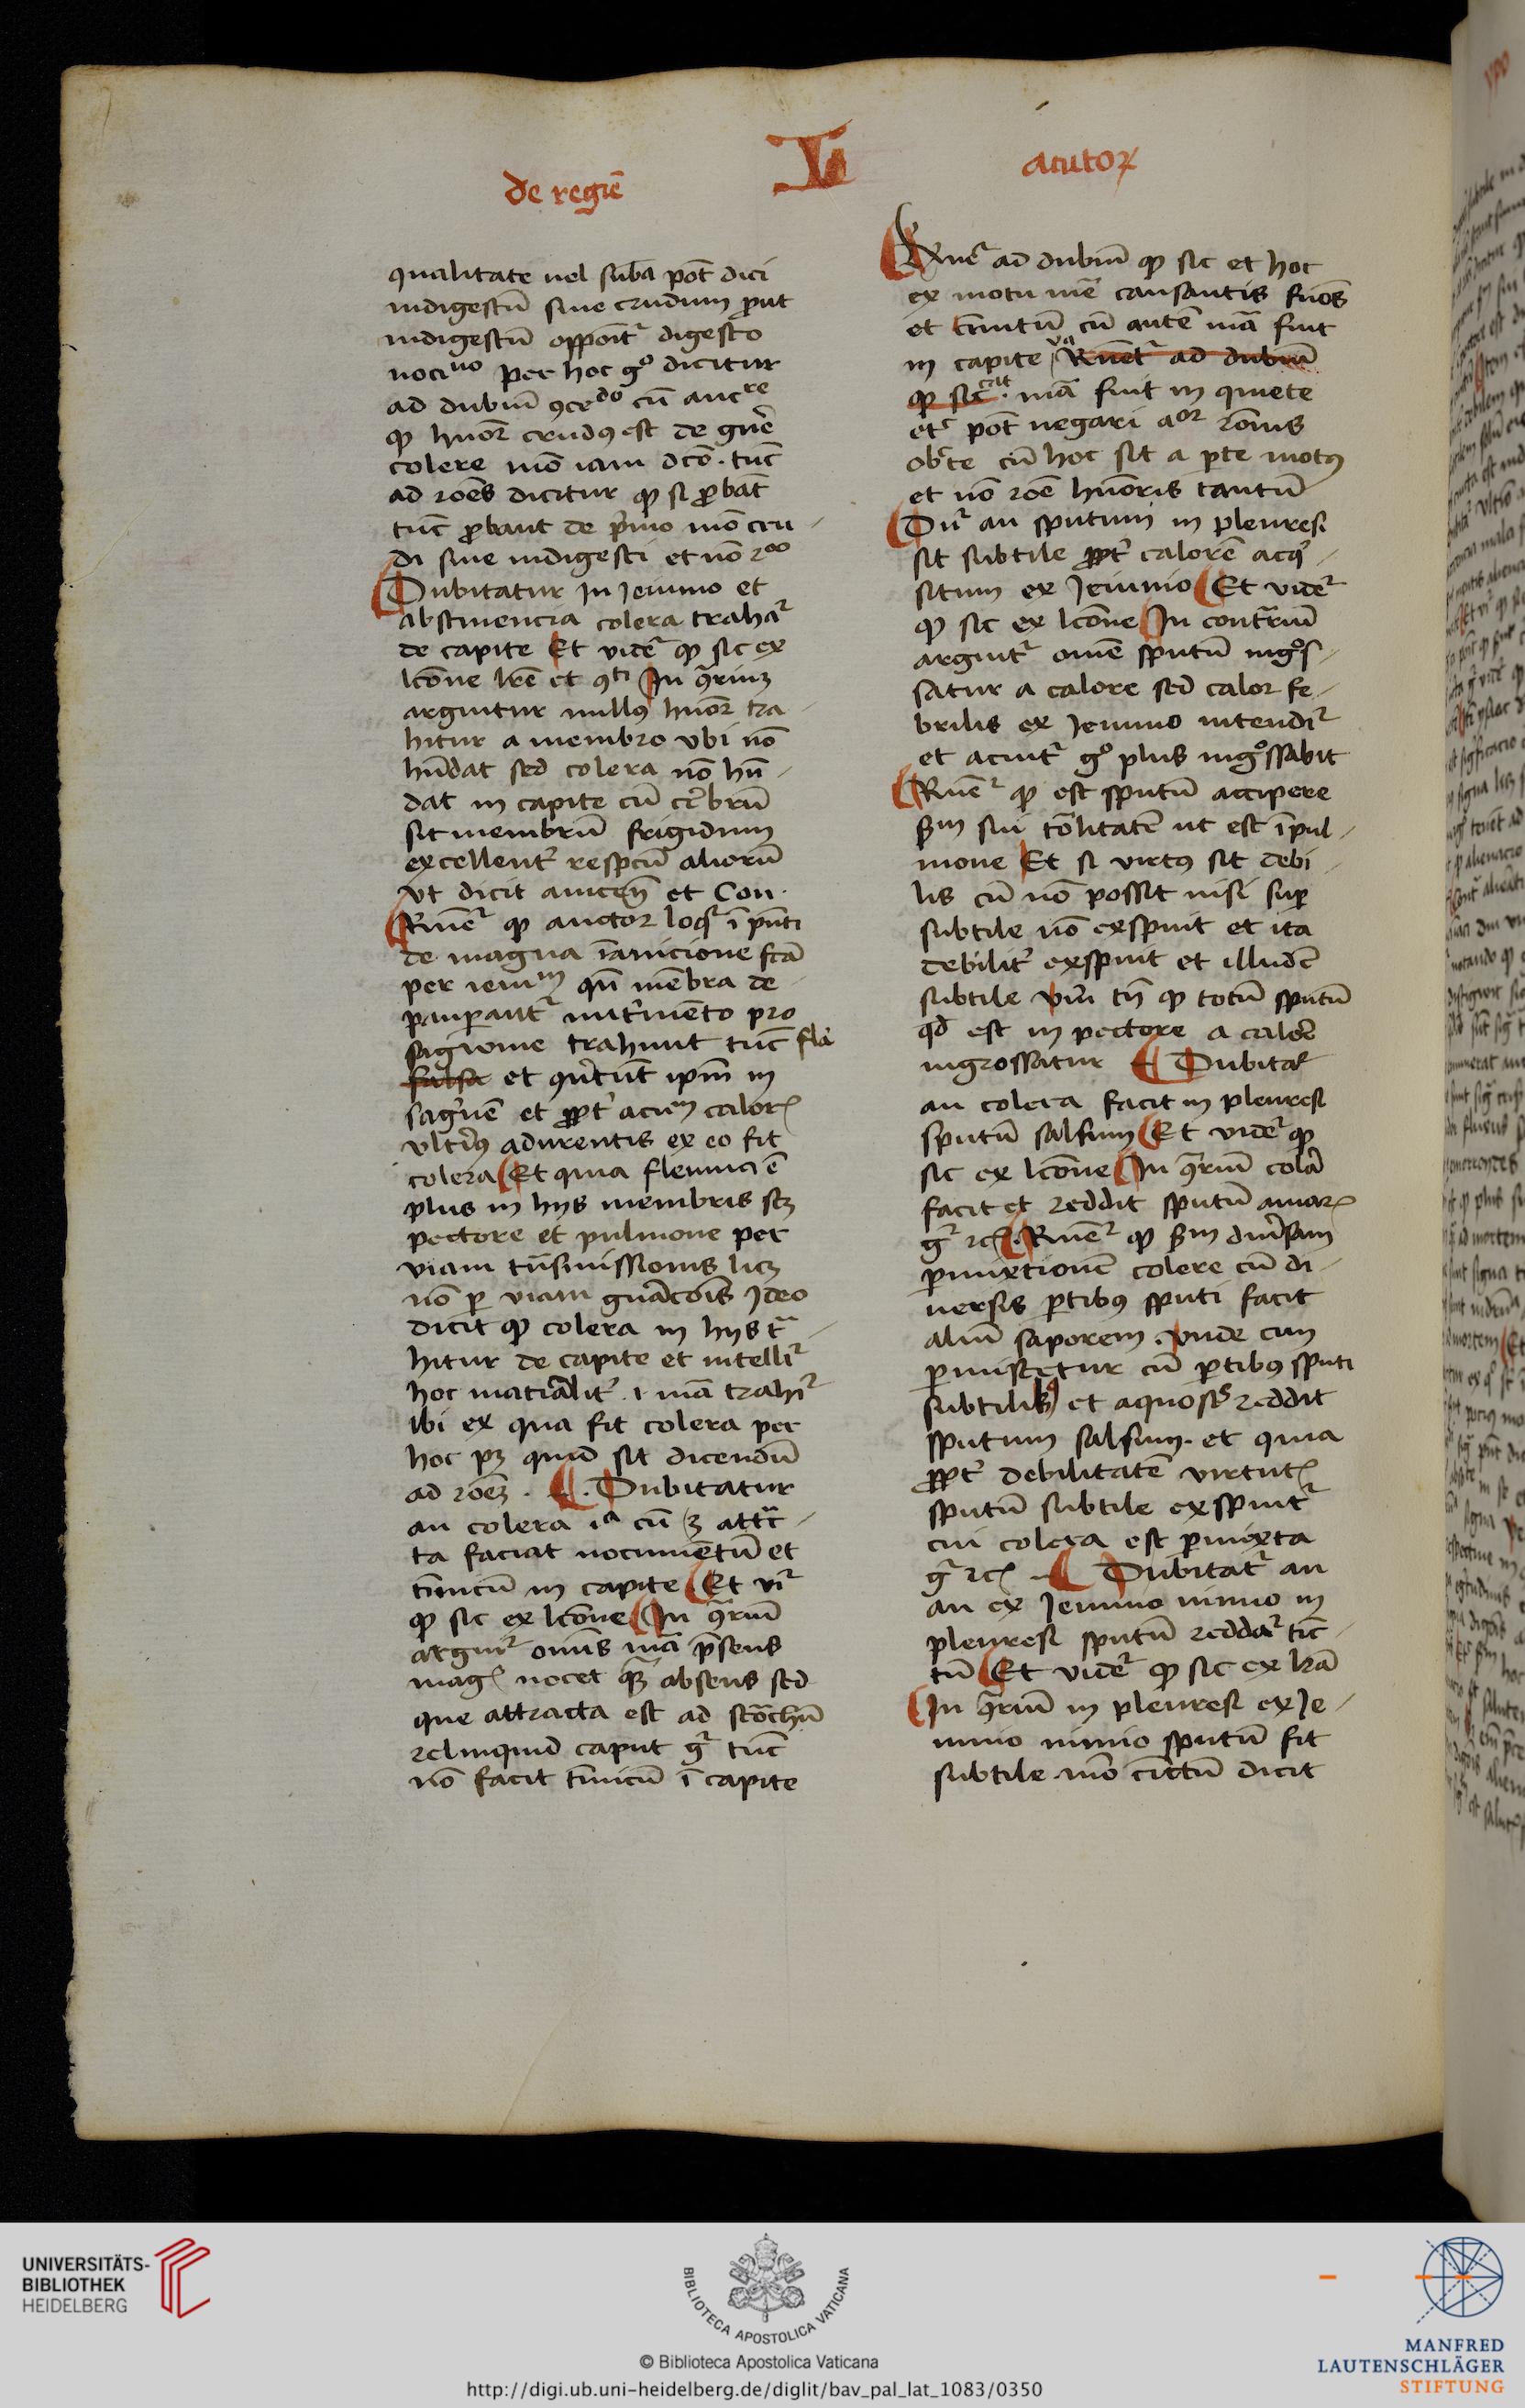 de regiē
L
acutoꝝ
qualitate uel suba pōt dici
indigestū siue crudum put
indigestū oppōitʳ digesto
nociuo per hoc gº dicitur
ad dubiū ꝯcedo cū aucre
ꝙ huōr crudꝰ est de gn̄e
colere mō iam dcō · tūc
ad rōes dicitur ꝙ si ꝓbāt
tūc ꝓbant de pͥmo mō cru
di siue indigesti et nō 2°°
Dubitatur in Jeiuno et
abstinencia colera trahaʳ
de capite Et videʳ ꝙ sic ex
lcōne lrē et ꝯti In ꝯrium
arguitur nullꝰ huōr tra
hitur a membro vbi nō
hūdat sed colera nō hū
dat in capite cū cerbrū
sit membrū frigidum
excellentʳ respcū aliorū
vt dicit auicen̄ et Con ·
Rn̄eʳ ꝙ auctor loqʳ ī pn̄ti
de magna īanicione fcā
per ieiuᵐ qn̄ mēbra de
pauꝑantʳ nutͥmento pro
sagwine trahunt tūc fla
falsa et ꝯūtūt ipm̄ in
sagͥnē et ꝓptʳ acuᵐ calorꝭ
vltiꝰ adurentis ex eo fit
colera Et quia flenuci ē
plus in hys membris scꝫ
pectore et pulmone per
viam tn̄smissionis licꝫ
nō ꝑ viam gn̄acōis Ideo
dicit ꝙ colera in hys tͣ
hitur de capite et intelliʳ
hoc matialitʳ · i mā trahiʳ
ibi ex qua fit colera per
hoc pꝫ quid sit dicendū
ad rōem · Dubitatur
an colera ia cū ꝫ attͣc
ta faciat nocumētū et
tīnicū in capite Et viʳ
ꝙ sic ex lcōne In ꝯriū
arguiʳ omīs mā pn̄sens
magꝭ nocet qͣꝫ absens sed
que attracta est ad stōchū
relinquid caput gʳ tūc
nō facit tīnicū ī capite
Rn̄eʳ ad dubiū ꝙ sic et hoc
ex motu mē causantis fuōs
et tīnitū cū autē mā fiut
in capite va Rn̄etʳ ad dubiū
ꝙ sic · mā fuit in quiete
etꝭ pōt negari aor rōnis
obte cū hoc sit a pte motꝰ
et nō rōe huōris tantū
Duʳ an sputum in pleuresi
sit subtile ꝓptʳ calorē acqͥ
situm ex Jeiunio Et videʳ
ꝙ sic ex lcōne In contͣriū
arguitʳ omē sputū ingͦs
satur a calore sed calor fe
brilis ex Jeiuno intendiʳ
et acuitʳ gº plus ingͦssabit
Rn̄eʳ ꝙ est sputū accipere
sm̄ sui tōlitatē ut est ī pul
mone Et si virtꝰ sit debi
lis cū nō possit nisi suꝑ
subtile nō expuit et ita
debilitʳ exspuit et illud ē
subtile vm̄ tn̄ ꝙ totū sputū
qd̄ est in pectore a calore
ingrossatur Dubitaʳ
an colera facit in pleuresi
sputū salsum Et videʳ ꝙ
sic ex lcōne In ꝯriū colā
facit et reddit sputū amarꝭ
gʳ rcꝭ · Rn̄eʳ ꝙ sm̄ diuͥsam
ꝑmixtionē colere cū di
uersis ꝑtibꝰ sputi facit
aliū saporem · vnde cum
ꝑmiscetur cū ꝑtibꝰ sputi
subtilibꝰ et aquosꝭ reddit
sputum salsum · et quia
ꝓptʳ debilitatē virtutꝭ
sputū subtile exspuitʳ
cui colera est ꝑmixta
gʳ rcꝭ Dubitatʳ an
an ex Jeiunio nimio in
pleuresi sputū reddaʳ tīc
tū Et videʳ ꝙ sic ex lrā
In ꝯriū in pleuresi ex Je
iunio nimio sputū fit
subtile · mō tīctū dicit
UNIVERSITÄTS-
BIBLIOTHEK
HEIDELBERG
BIBLIOTECA APOSTOLICA VATICANA
© Biblioteca Apostolica Vaticana
http://digi.ub.uni-heidelberg.de/diglit/bav_pal_lat_1083/0350
MANFRED
LAUTENSCHLÄGER
STIFTUNG